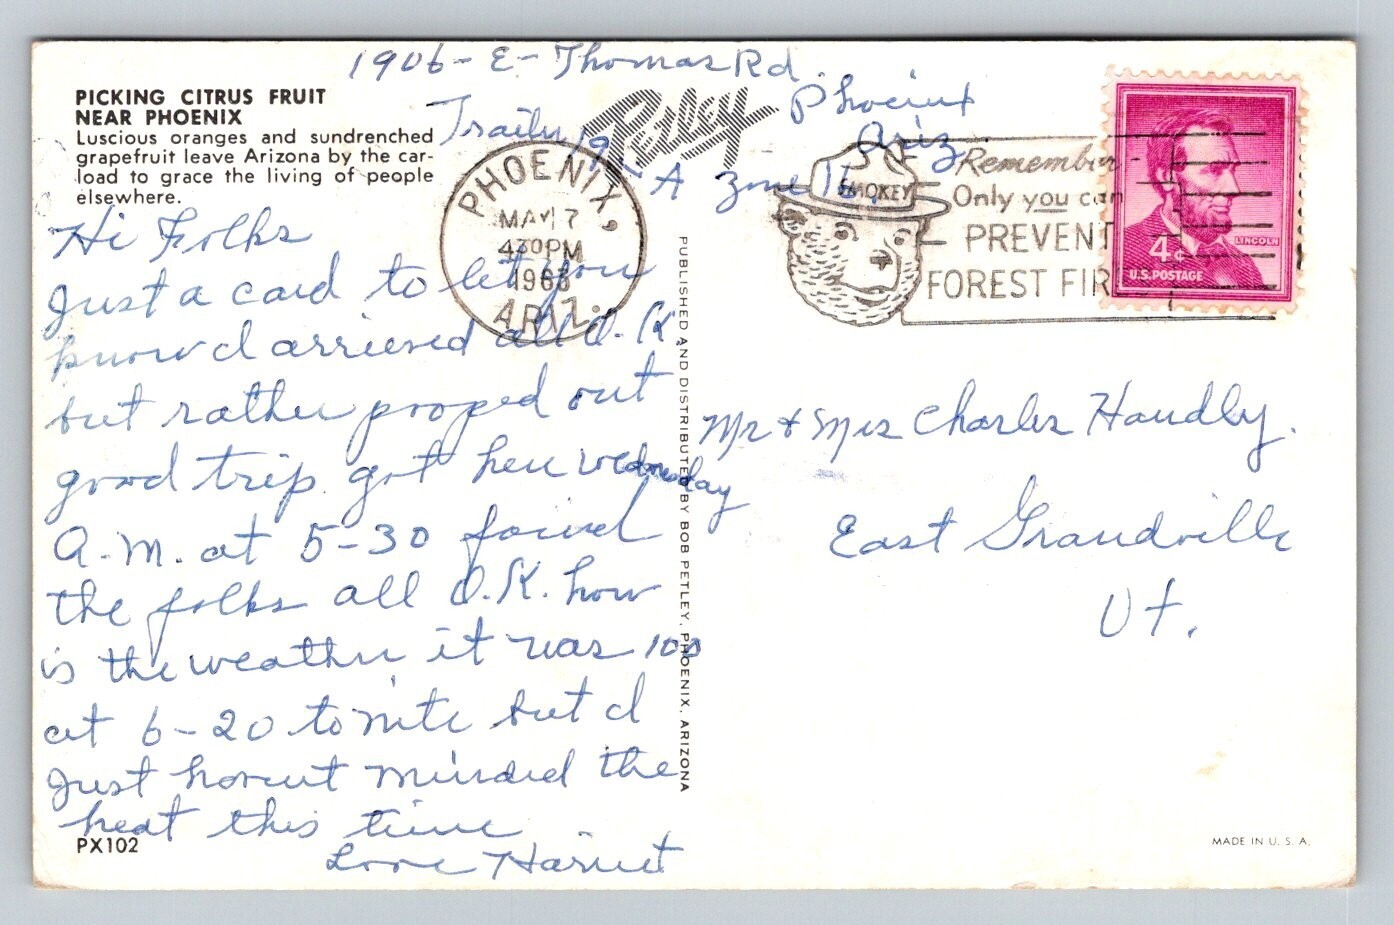 1906-E-Thomas Rd.
Phoenix
Ariz
Trailer 19
A Zone 16.
PICKING CITRUS FRUIT
NEAR PHOENIX
Luscious oranges and sundrenched
grapefruit leave Arizona by the car-
load to grace the living of people
elsewhere.
Petley
PHOENIX,
MAY 7
430PM
1963
ARIZ.
SMOKEY
Remember-
Only you can
PREVENT
FOREST FIR
4¢
LINCOLN
U.S. POSTAGE
Hi Folks
Just a card to let you
know I arrieved all O.K
but rather pooped out
good trip. got here Wednesday
A.M. at 5-30 found
the folks all O.K. how
is the weather it was 100
at 6-20 to nite but I
Just havent minded the
heat this time
Love Harriet
PX102
PUBLISHED AND DISTRIBUTED BY BOB PETLEY, PHOENIX, ARIZONA
Mr & Mrs Charles Handly.
East Grandville
Vt.
MADE IN U. S. A.